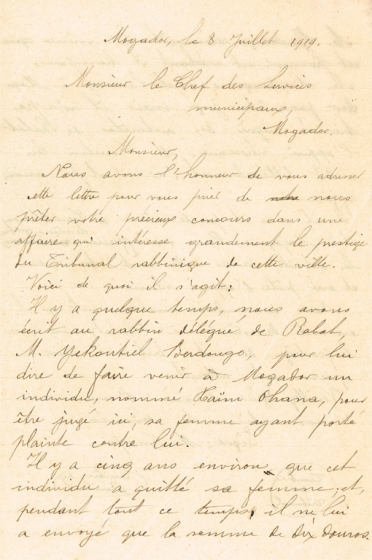 Mogador, le 8 Juillet 1919.
Monsieur le Chef des Services
municipaux
Mogador.
Monsieur,
Nous avons l'honneur de vous adresser
cette lettre pour vous prier de nous
prêter votre précieux concours dans une
affaire qui intéresse grandement le prestige
du Tribunal rabbinique de cette ville.
Voici de quoi il s'agit:
Il y a quelque temps, nous avons
écrit au rabbin délégué de Rabat,
M. Yekoutiel Berdugo, pour lui
dire de faire venir à Mogador un
individu, nommé Haïm Ohana, pour
être jugé ici, sa femme ayant porté
plainte contre lui.
Il y a cinq ans environ que cet
individu a quitté sa femme et,
pendant tout ce temps, il ne lui
a envoyé que la somme de dix douros.